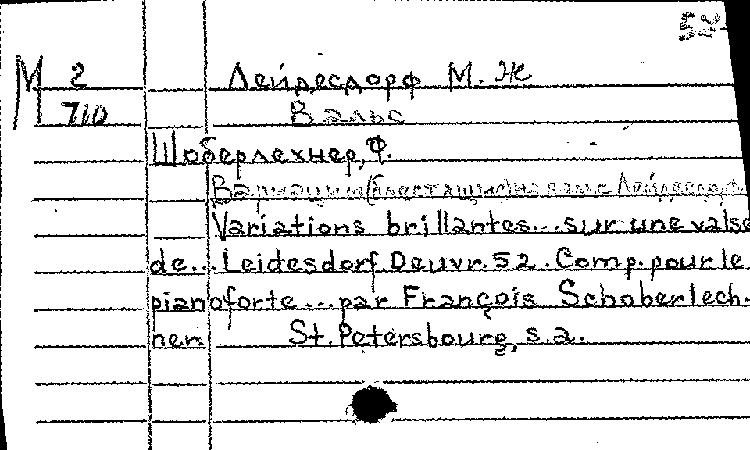 52
М 2 Лейдесдорф М. Ж
710 Вальс
Шоберлехнер, Ф.
Вариации (блестящие) на вальс Лейдесдорф
Variations brillantes... sur une valse
de... Leidesdorf. Oeuvr. 52. Comp. pour le
pianoforte... par François Schoberlech-
ner. St. Petersbourg, s.a.